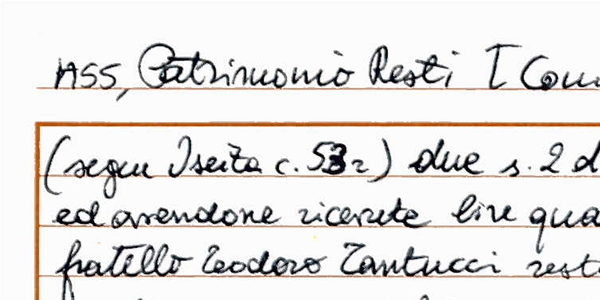 ASS, Patrimonio Resti I Com
(segue Iscritta c. 53r) due s. 2 d
ed avendone ricevute lire qua
fratello Teodoro Tantucci rest